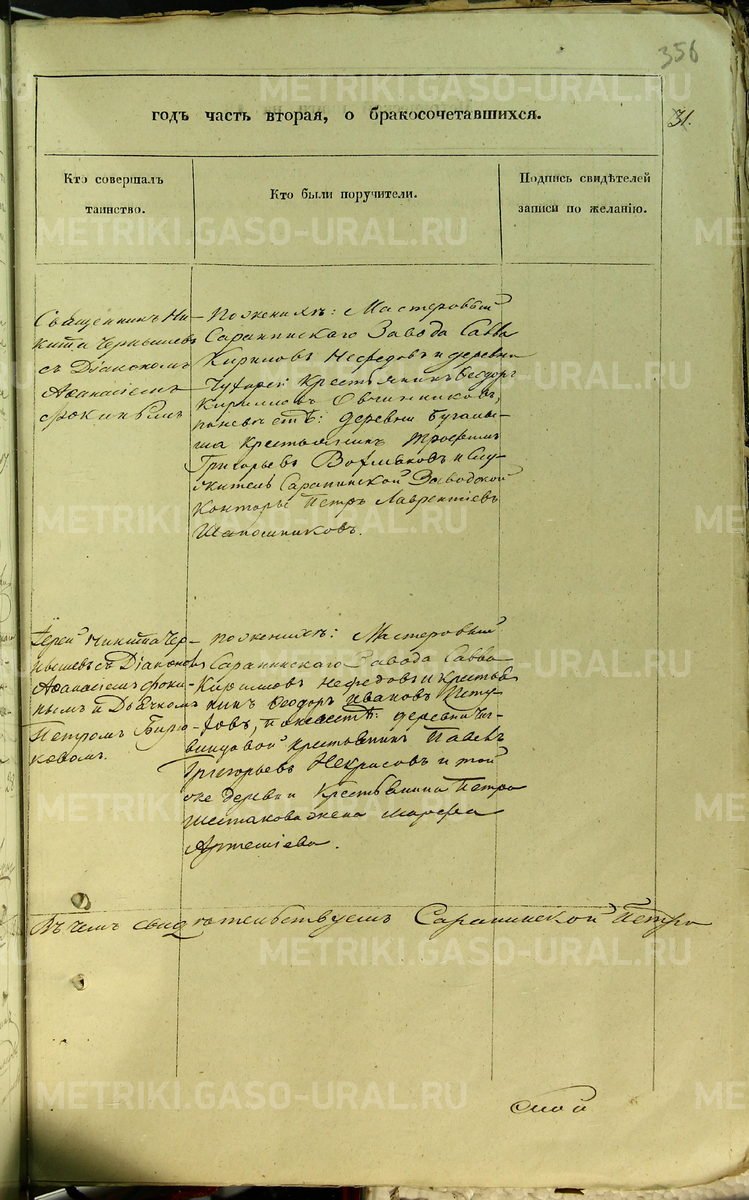 356
31.
годъ часть вторая, о бракосочетавшихся.
Кто совершалъ
таинство.
Кто были поручители.
Подпись свидѣтелей
записи по желанію.
Священникъ Ни-
кита Чернышевъ
съ Діакономъ
Аѳанасіемъ
Фокинымъ
По женихѣ: Мастеровый
Саранинскаго Завода Савва
Кириловъ Нефедовъ и деревни
крестьянинъ Ѳеодоръ
Кириловъ Овчинниковъ,
по невѣстѣ: деревни Бугалы-
ша крестьянинъ Трофимъ
Григорьевъ и Слу-
житель Саранинской Заводской
Конторы Петръ Лаврентіевъ
Шапошниковъ.
Іерей Никита Чер-
нышевъ съ Діакономъ
Аѳанасіемъ Фоки-
нымъ и Дьячкомъ
Петромъ Бирю-
ковымъ.
по женихѣ: Мастеровый
Саранинскаго Завода Савва
Кириловъ Нефедовъ и крестья-
нинъ Ѳеодоръ Ивановъ
по невѣстѣ: деревни
крестьянинъ Павелъ
Григорьевъ Некрасовъ и той
же деревни Крестьянина Петра
Шестакова жена Марѳа
Артемьева.
Въ чемъ свидѣтельствуемъ Саранинской Петро
METRIKI.GASO-URAL.RU